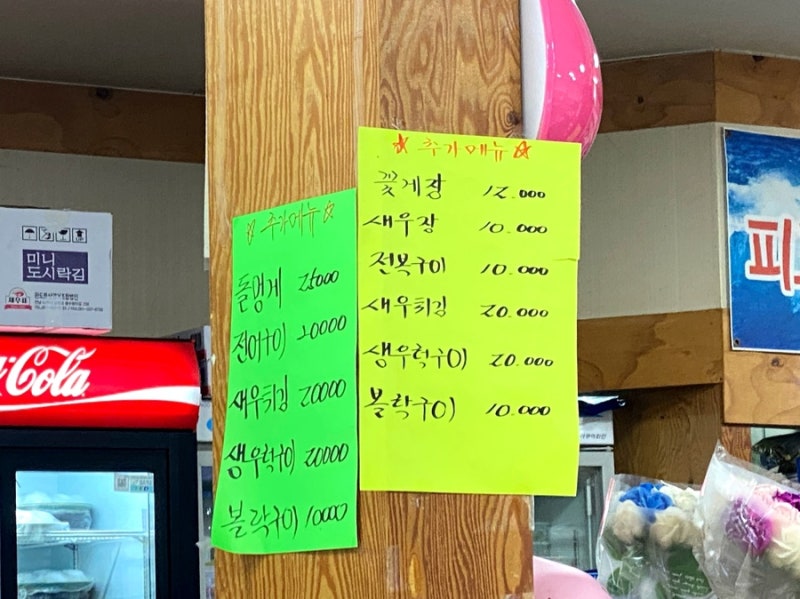 ☆ 추가메뉴 ☆
돌멍게 25000
전어구이 20000
새우튀김 20000
생우럭구이 20000
볼락구이 10000
☆ 추가메뉴 ☆
꽃게장 12.000
새우장 10.000
전복구이 10.000
새우튀김 20.000
생우럭구이 20.000
볼락구이 10.000
미니
도시락김
Coca-Cola
피